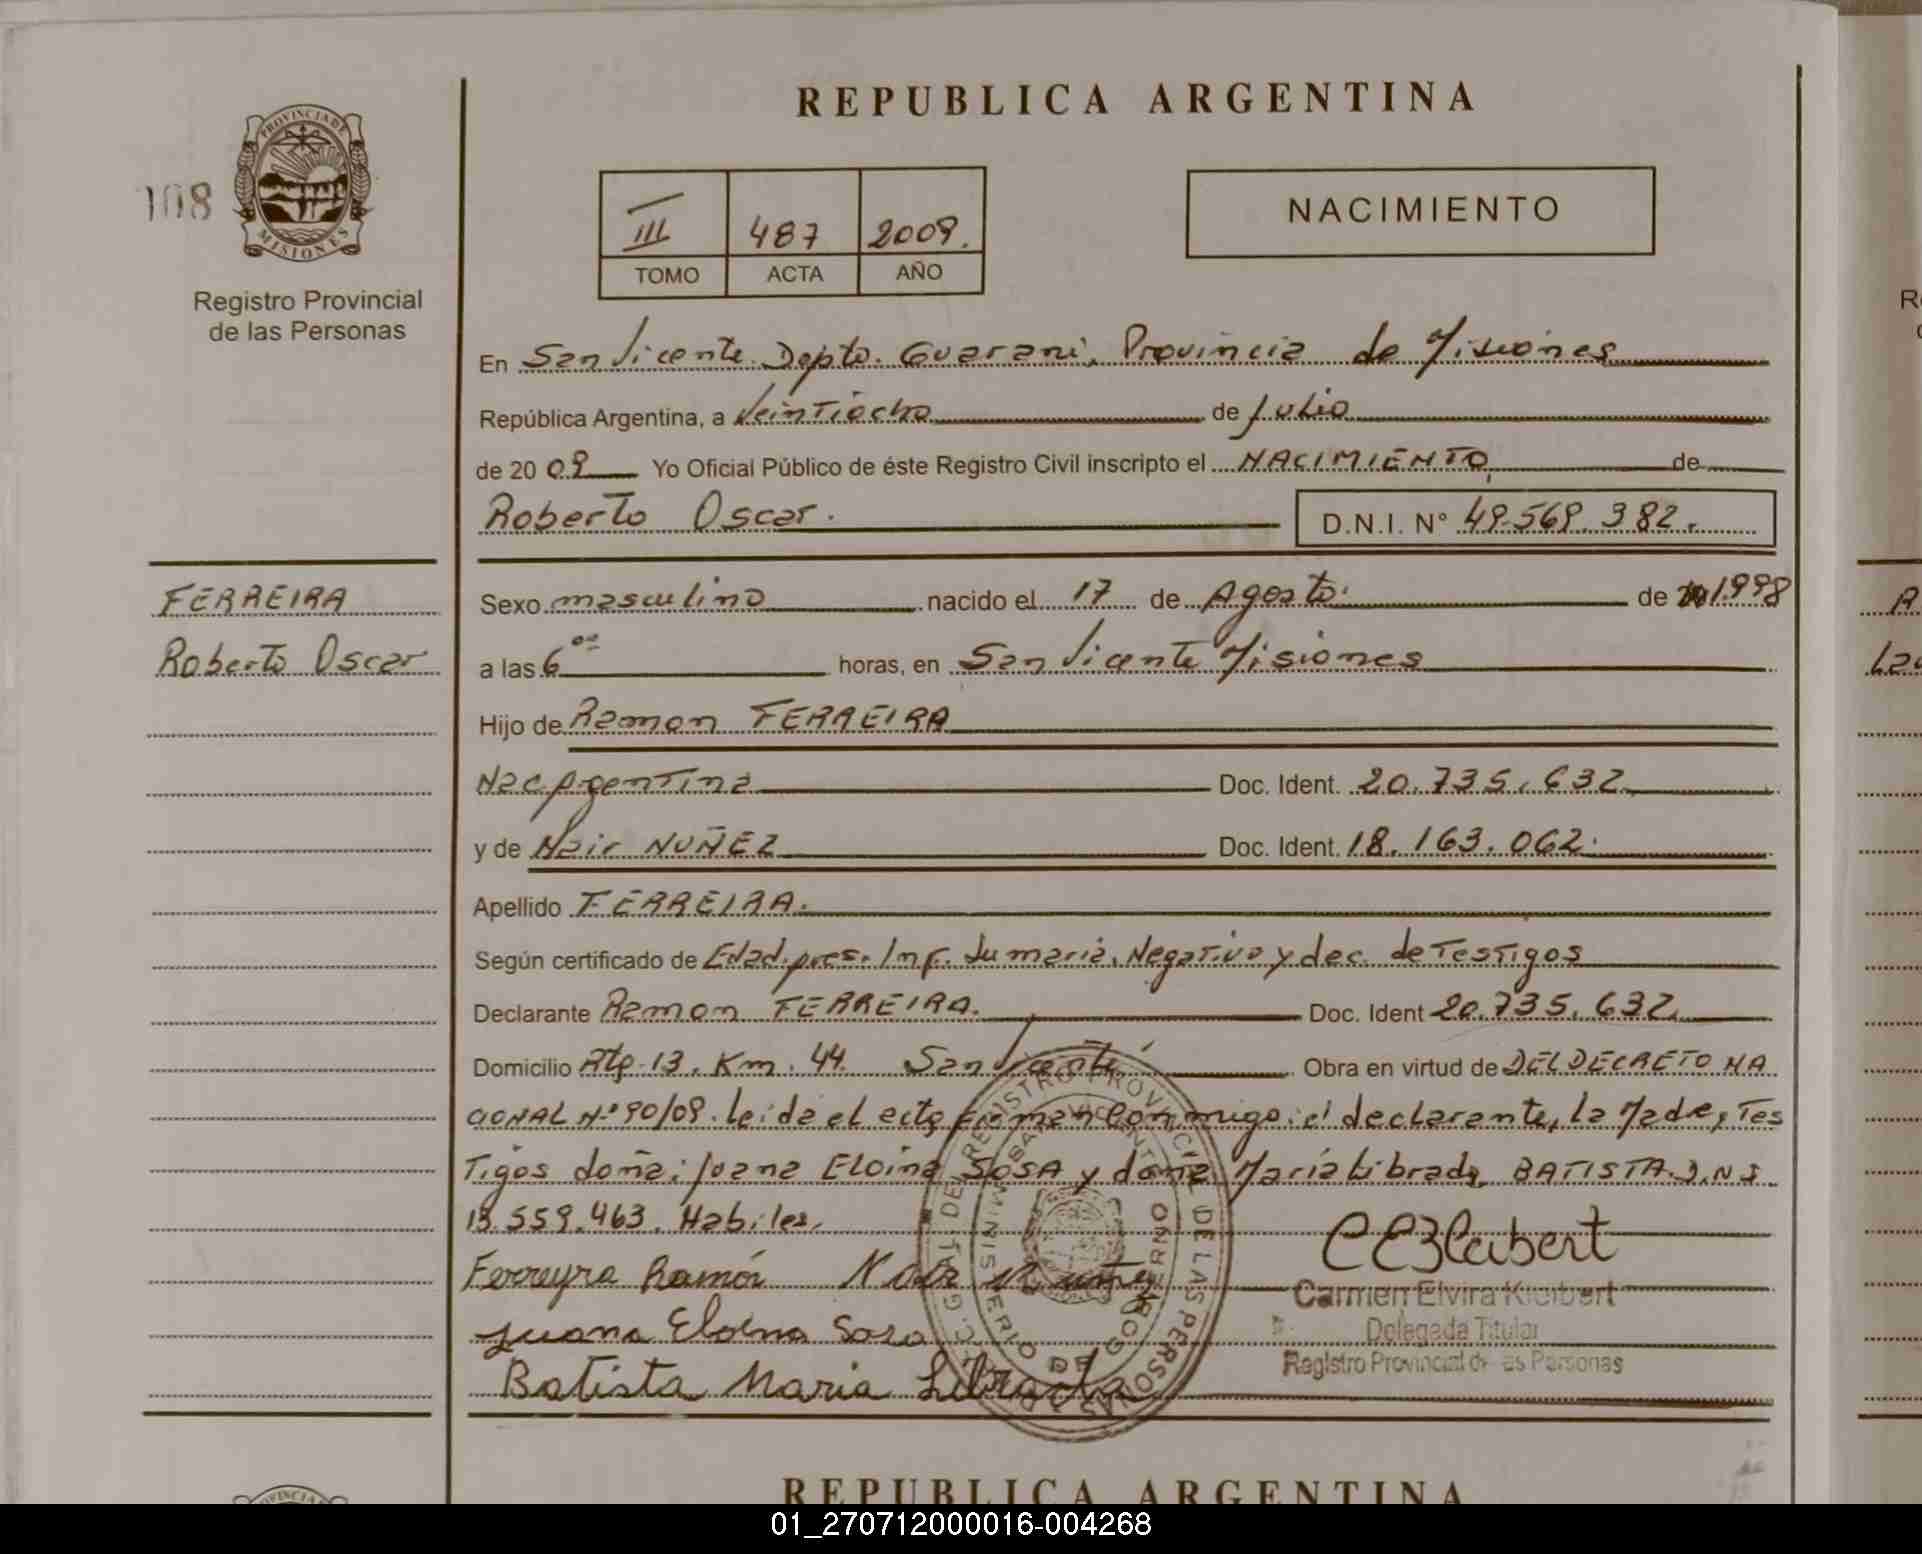 REPUBLICA ARGENTINA
108
PROVINCIA DE
MISIONES
Registro Provincial
de las Personas
III 487 2009.
TOMO ACTA AÑO
NACIMIENTO
En San Vicente Depto. Guarani, Provincia de Misiones
República Argentina, a Veintiocho de Julio
de 2009 Yo Oficial Público de éste Registro Civil inscripto el NACIMIENTO, de
Roberto Oscar. D.N.I. N° 49.569.382.
FERREIRA
Roberto Oscar
Sexo masculino nacido el 17 de Agosto. de 1998
a las 6 oo horas, en San Vicente Misiones
Hijo de Ramon FERREIRA
Nac Argentina Doc. Ident. 20.735.632
y de Nair NUÑEZ Doc. Ident. 18.163.062.
Apellido FERREIRA.
Según certificado de Edad. pres. Inf. Sumaria, Negativa y dec. de Testigos
Declarante Ramon FERREIRA. Doc. Ident 20.735.632.
Domicilio Rta. 13. Km. 44. San Vicente Obra en virtud de DEL DECRETO NA
CIONAL N° 90/09. leida el acta firman conmigo: el declarante, la Madre, Tes
Tigos doña: Juana Eloina SOSA y doña Maria Librada BATISTA. D.N.I.
13.559.463. Habiles.
Ferreyra Ramón Nair Nuñez
Juana Eloina Sosa
Batista Maria Librada
CEKlabert
Carmen Elvira
Delegada Titular
Registro Provincial de las Personas
REGISTRO PROVINCIAL DE LAS PERSONAS
MINISTERIO DE GOBIERNO
SAN VICENTE
REPUBLICA ARGENTINA
PROVINCIA
01_270712000016-004268